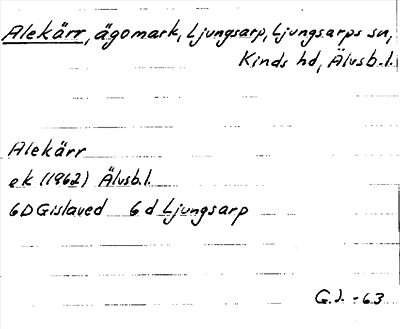 Alekärr, ägomark, Ljungsarp, Ljungsarps sn,
Kinds hd, Älvsb.l.
Alekärr
ek (1962) Älvsb.l.
6D Gislaved 6d Ljungsarp
G.J. -63